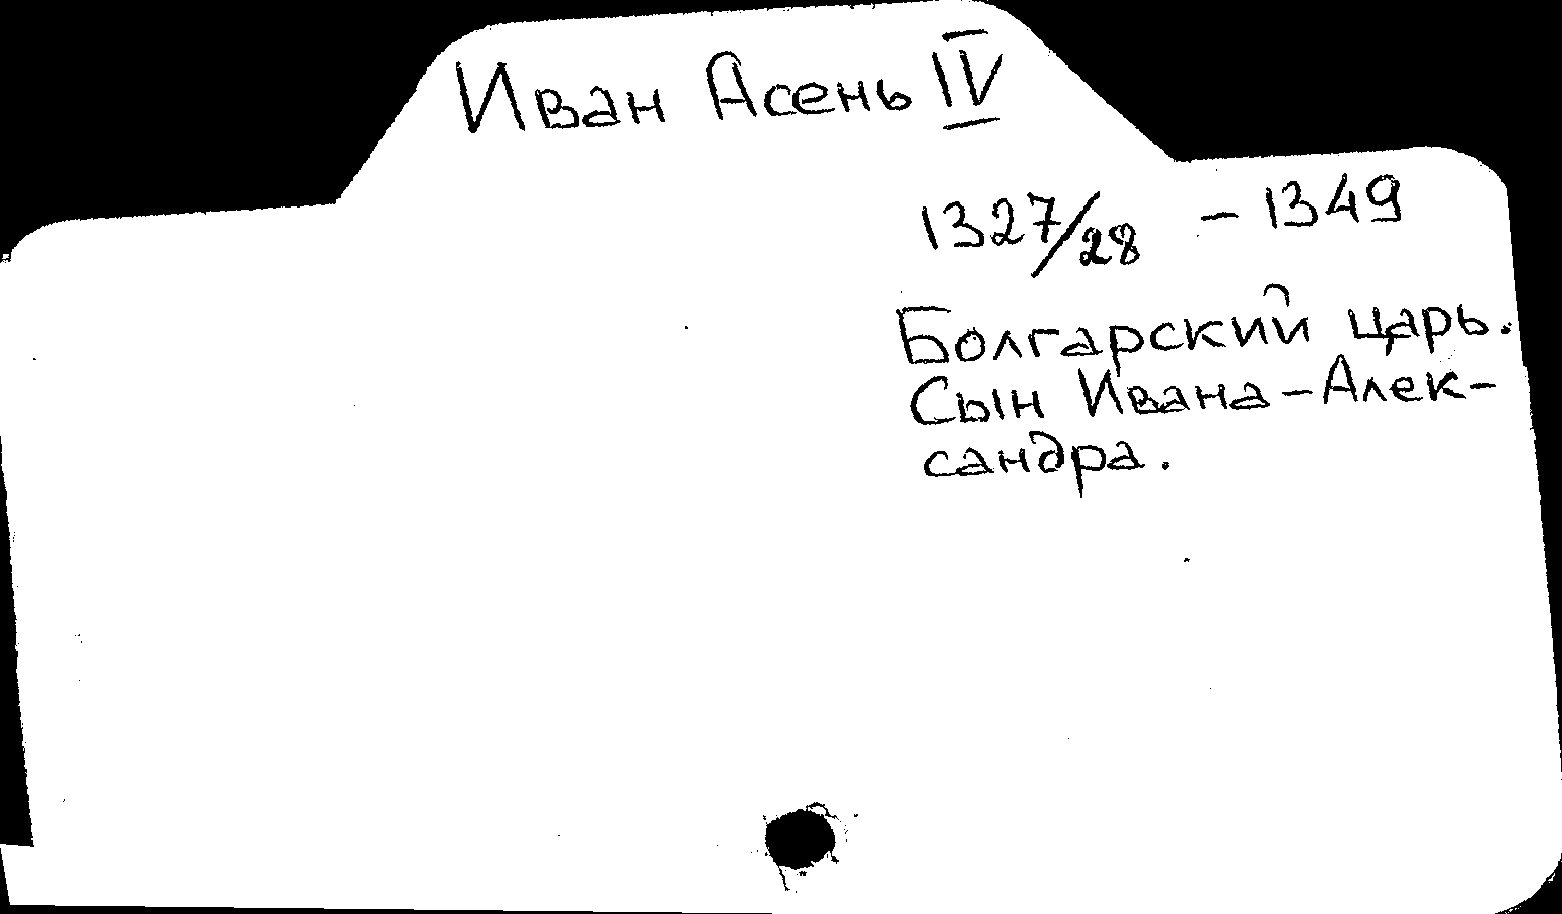 Иван Асень IV
1327/28 - 1349
Болгарский царь.
Сын Ивана-Алек-
сандра.